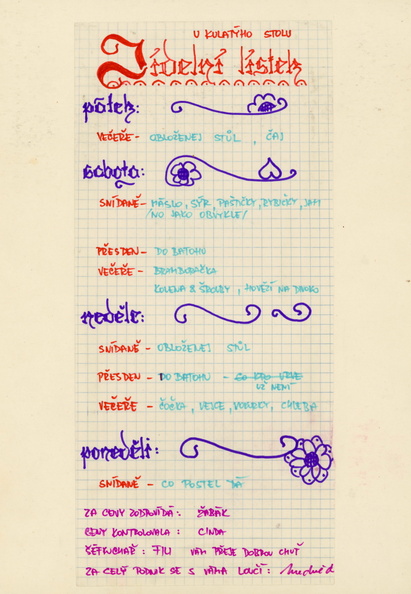 U KULATÝHO STOLU
Jídelní lístek
pátek:
VEČEŘE - OBLOŽENEJ STŮL, ČAJ
sobota:
SNÍDANĚ - MÁSLO, SÝR, PAŠTIČKY, RYBIČKY,
/NO JAKO OBVYKLE/
PŘESDEN - DO BATOHU
VEČEŘE - BRAMBORAČKA
KOLENA, HOVĚZÍ NA
neděle:
SNÍDANĚ - OBLOŽENEJ STŮL
PŘESDEN - DO BATOHU -
UŽ NENÍ
VEČEŘE - ČOČKA, VEJCE, VOKURKY, CHLEBA
pondělí:
SNÍDANĚ - CO POSTEL DÁ
ZA CENY ZODPOVÍDÁ: ŽABÁK
CENY KONTROLOVALA: CINDA
ŠÉFKUCHAŘ: VÁM PŘEJE DOBROU CHUŤ
ZA CELÝ PODNIK SE S VÁMA LOUČÍ: